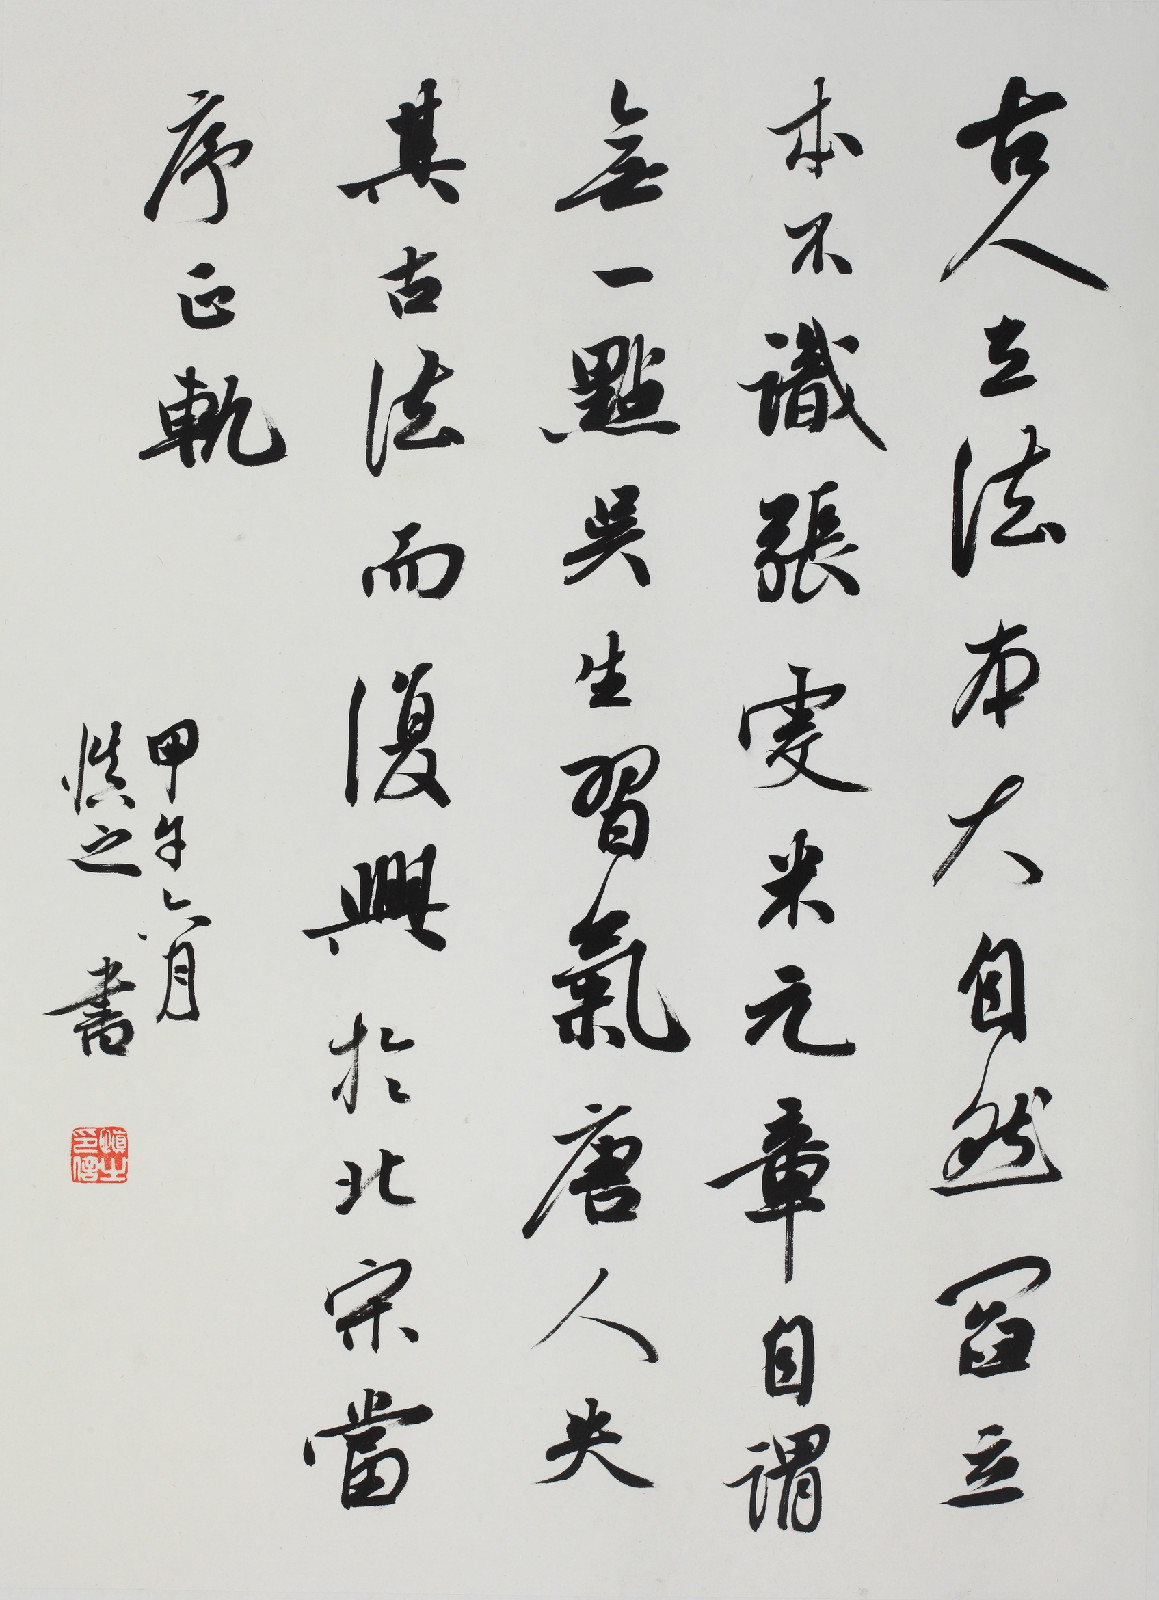 古人立法本大自然冨立
本不識張雯米元章自謂
無一點吳生習氣唐人失
其古法而復興於北宋當
序正軌
甲午六月
慎之書
慎之
印信